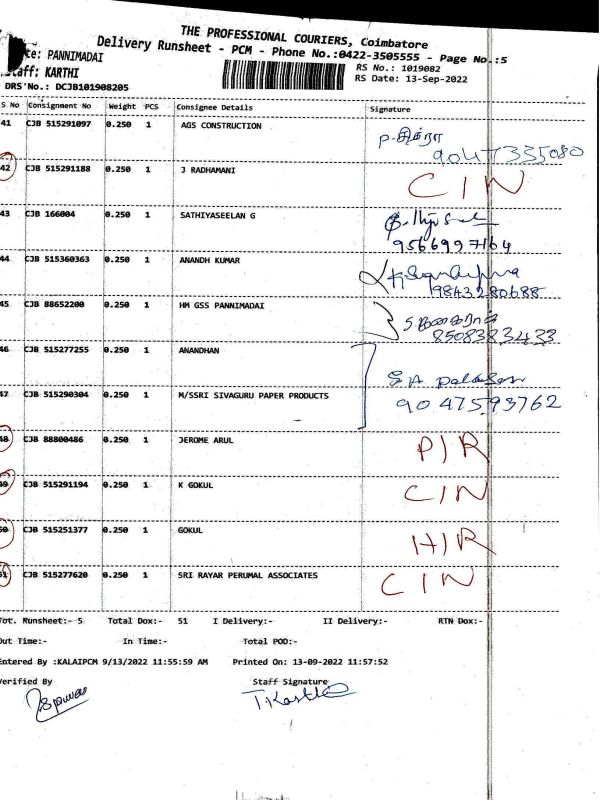 THE PROFESSIONAL COURIERS, Coimbatore
Delivery Runsheet - PCM - Phone No.:0422-3505555 - Page No.:5
te: PANNIMADAI
taff: KARTHI
RS No.: 1019082
RS Date: 13-Sep-2022
DRS No.: DCJB101908205
S No Consignment No Weight PCS Consignee Details Signature
41 CJB 515291097 0.250 1 AGS CONSTRUCTION P. சித்ரா
9047335080
42 CJB 515291188 0.250 1 J RADHAMANI CIN
43 CJB 166004 0.250 1 SATHIYASEELAN G
9566997164
44 CJB 515360363 0.250 1 ANANDH KUMAR
9843280688
45 CJB 88652200 0.250 1 HM GSS PANNIMADAI
8508383433
46 CJB 515277255 0.250 1 ANANDHAN
47 CJB 515290304 0.250 1 M/SSRI SIVAGURU PAPER PRODUCTS
9047593762
48 CJB 88800486 0.250 1 JEROME ARUL P/R
49 CJB 515291194 0.250 1 K GOKUL CIN
50 CJB 515251377 0.250 1 GOKUL H/R
51 CJB 515277620 0.250 1 SRI RAYAR PERUMAL ASSOCIATES CIN
Tot. Runsheet:- 5 Total Dox:- 51 I Delivery:- II Delivery:- RTN Dox:-
Out Time:- In Time:- Total POD:-
Entered By :KALAIPCM 9/13/2022 11:55:59 AM Printed On: 13-09-2022 11:57:52
Verified By Staff Signature